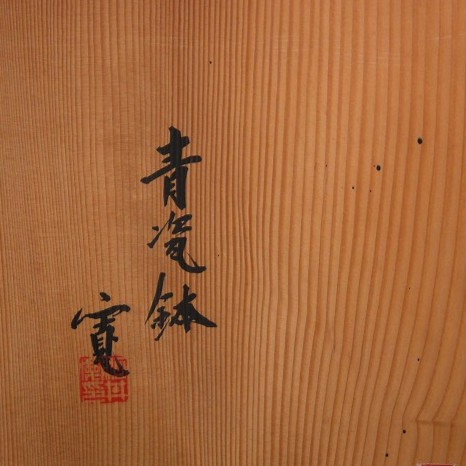 青瓷鉢
寛